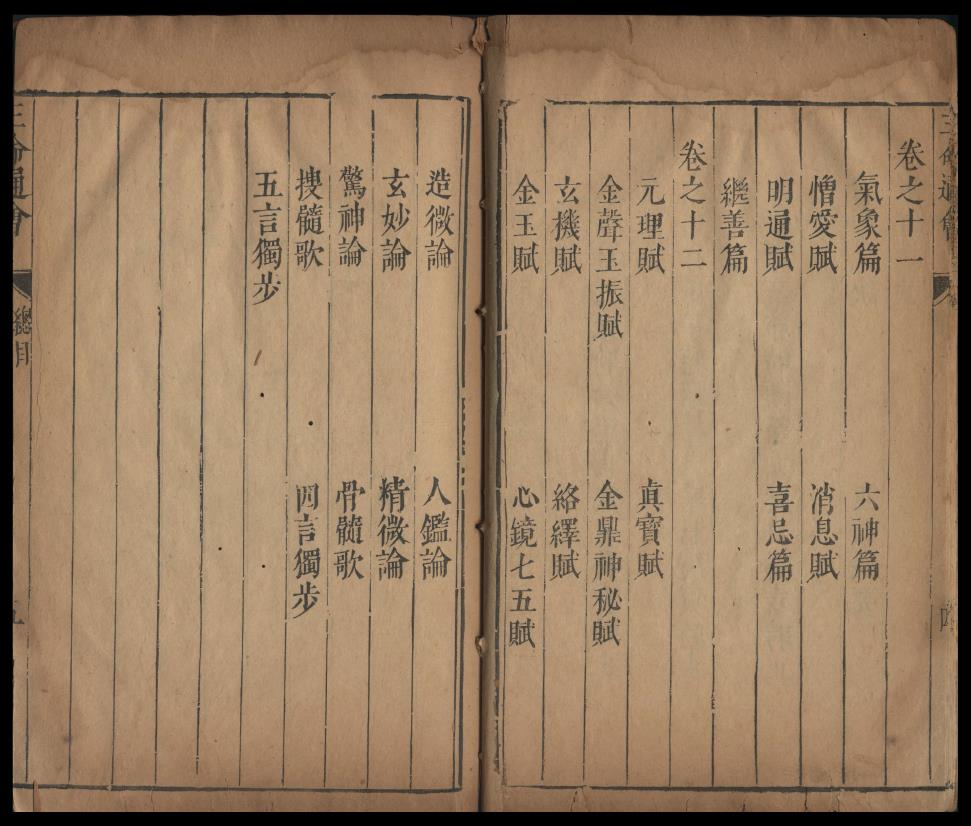 三命通會
四
卷之十一
氣象篇 六神篇
憎愛賦 消息賦
明通賦 喜忌篇
繼善篇
卷之十二
元理賦 眞寶賦
金聲玉振賦 金鼎神秘賦
玄機賦 絡繹賦
金玉賦 心鏡七五賦
造微論 人鑑論
玄妙論 精微論
驚神論 骨髓歌
搜髓歌 四言獨步
五言獨步
三命通會 總目 五